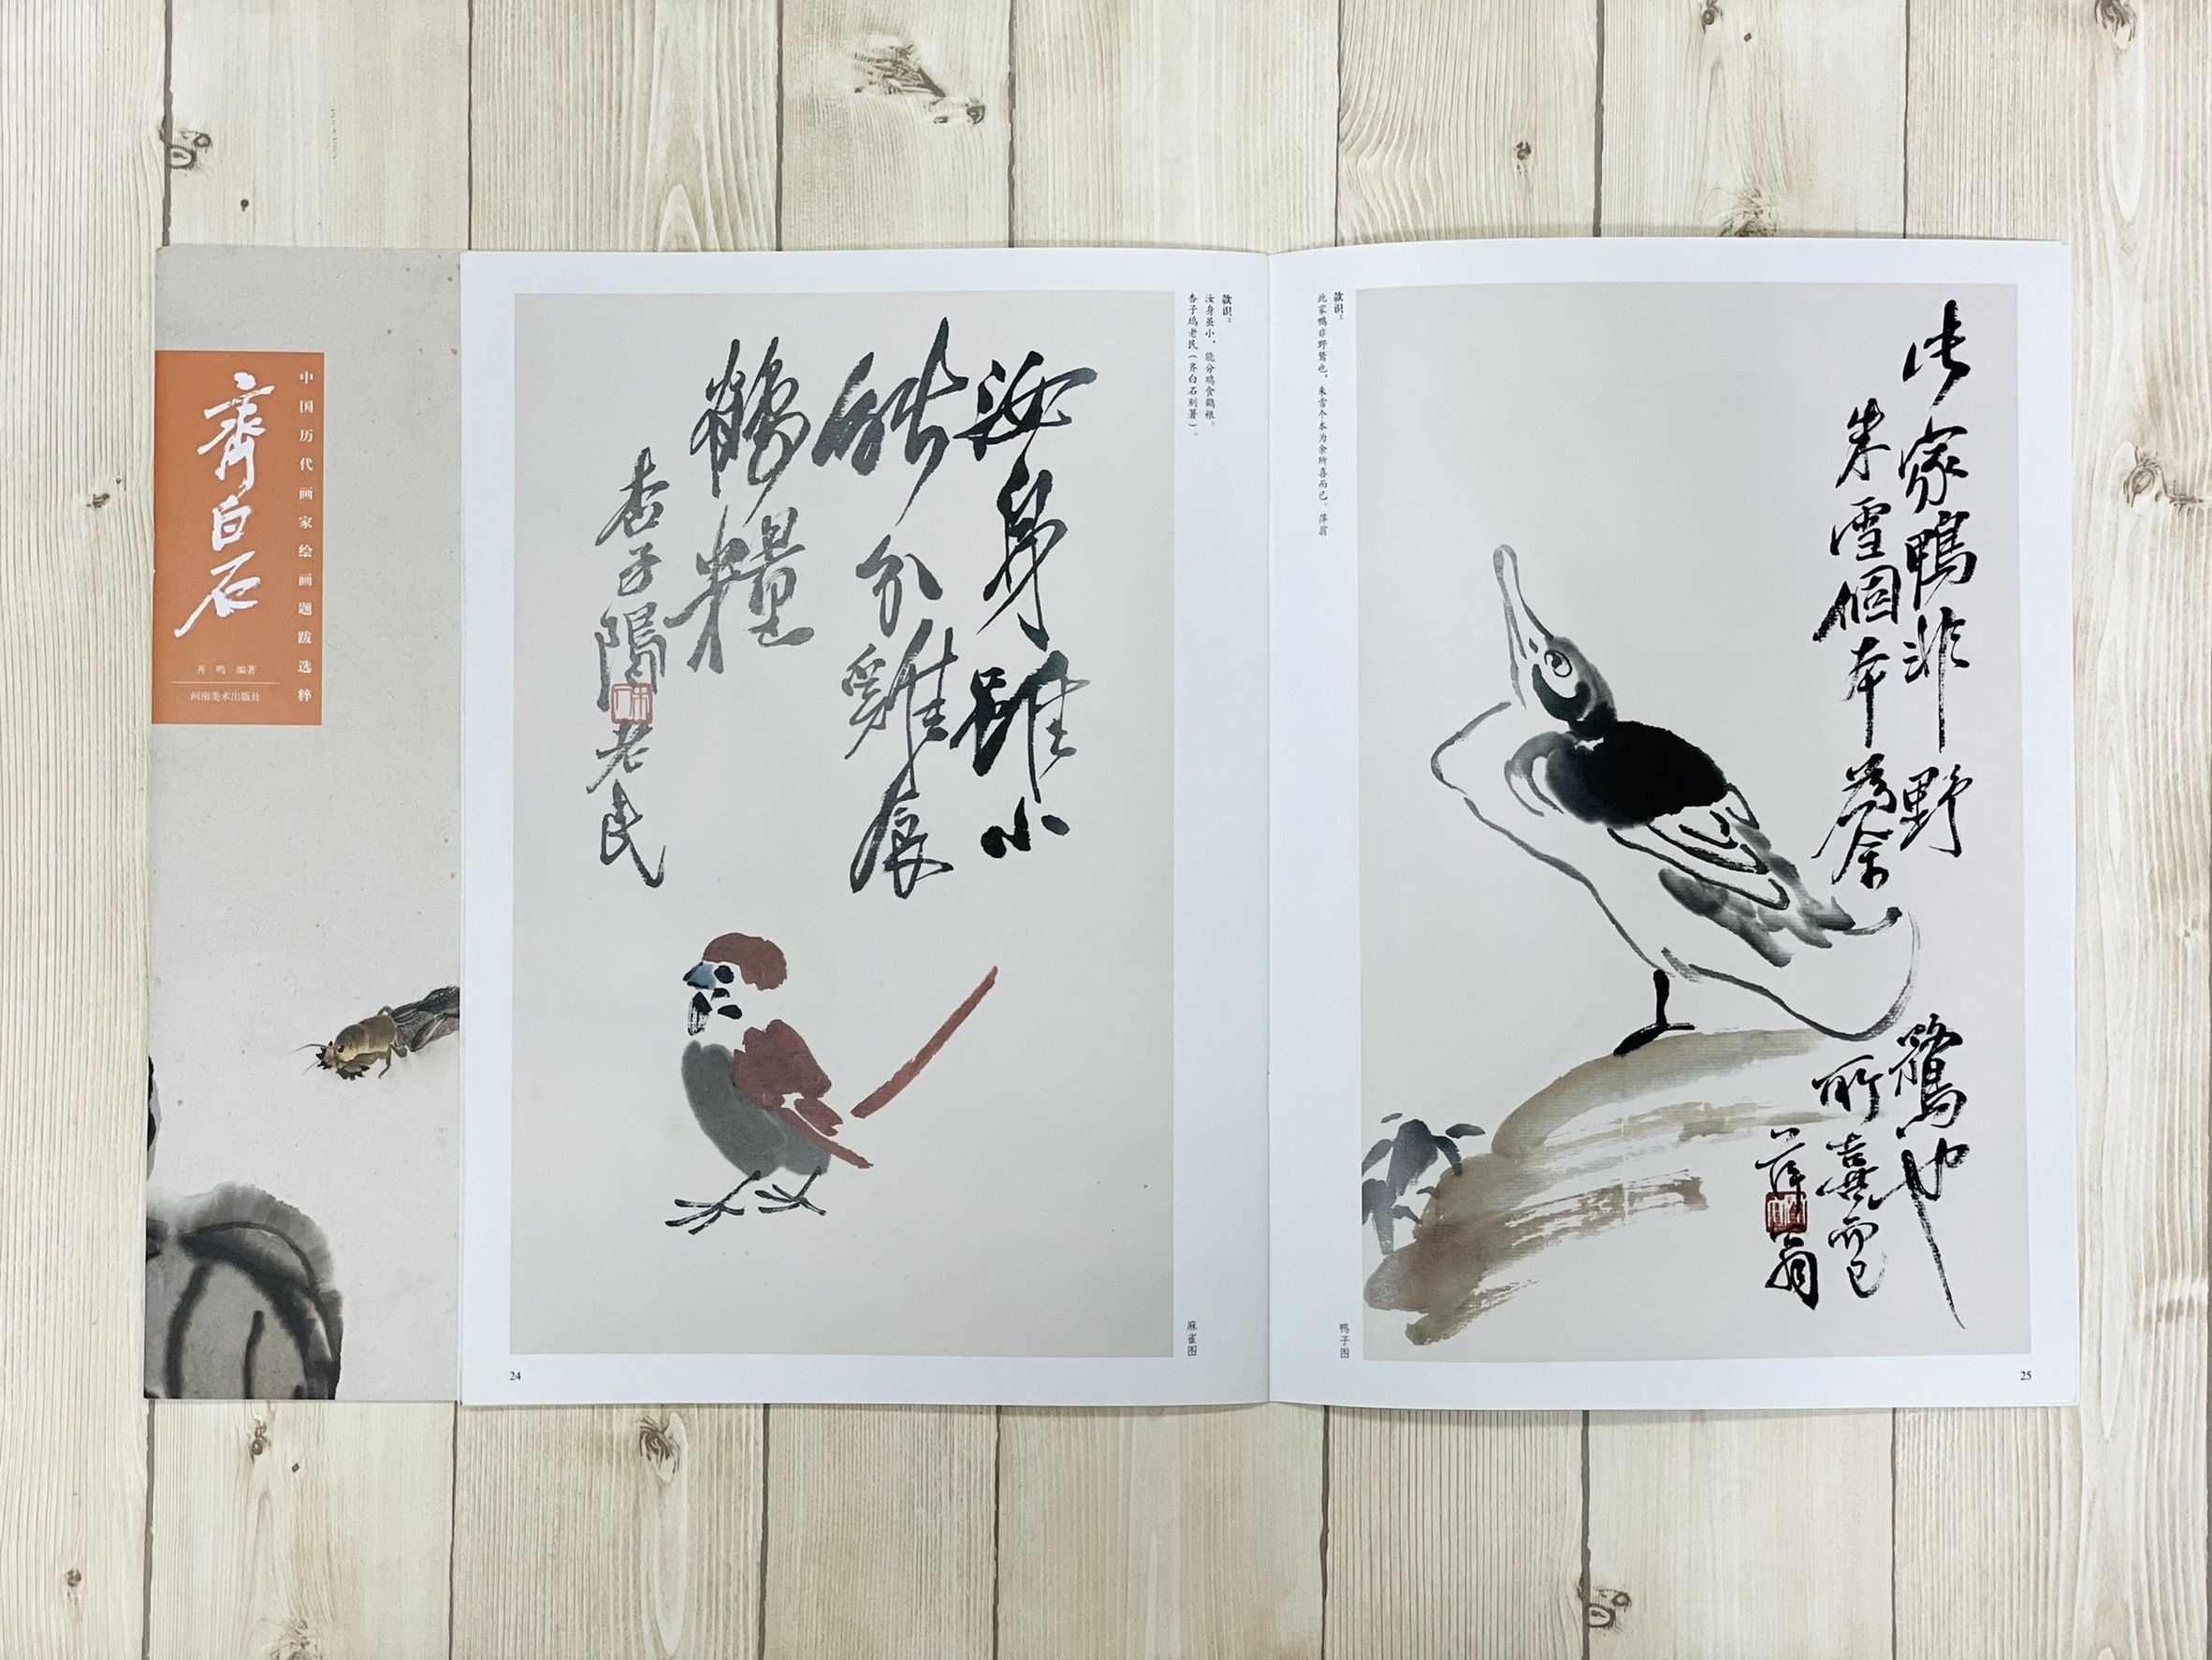 中国历代画家绘画题跋选粹
齊白石
齐 鸣 编著
河南美术出版社
汝身雖小
能分雞食
鶴糧
杏子隝老民
款识：
汝身虽小，能分鸡食鹤粮。
杏子坞老民（齐白石别署）。
麻雀图
24
款识：
此家鸭非野鹜也，朱雪个本为余所喜而已。萍翁
鸭子图
此家鴨非野鶩也
朱雪個本為余所喜而已
萍翁
25